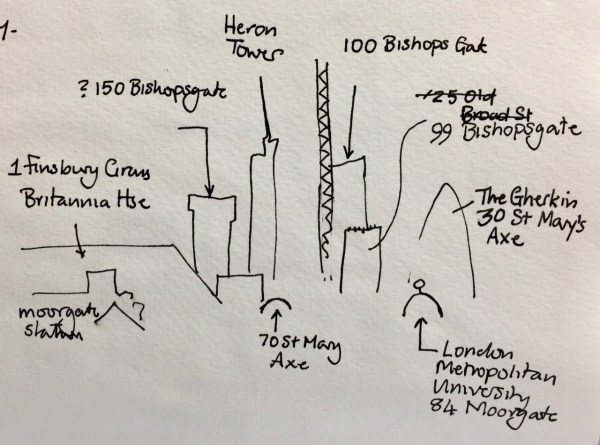 1-
Heron
Tower
100 Bishops Gat
? 150 Bishopsgate
125 Old
Broad St
99 Bishopsgate
1 Finsbury Circus
Britannia Hse
The Gherkin
30 St Mary's
Axe
moorgate
station
?
70 St Mary
Axe
London
Metropolitan
University
84 Moorgate